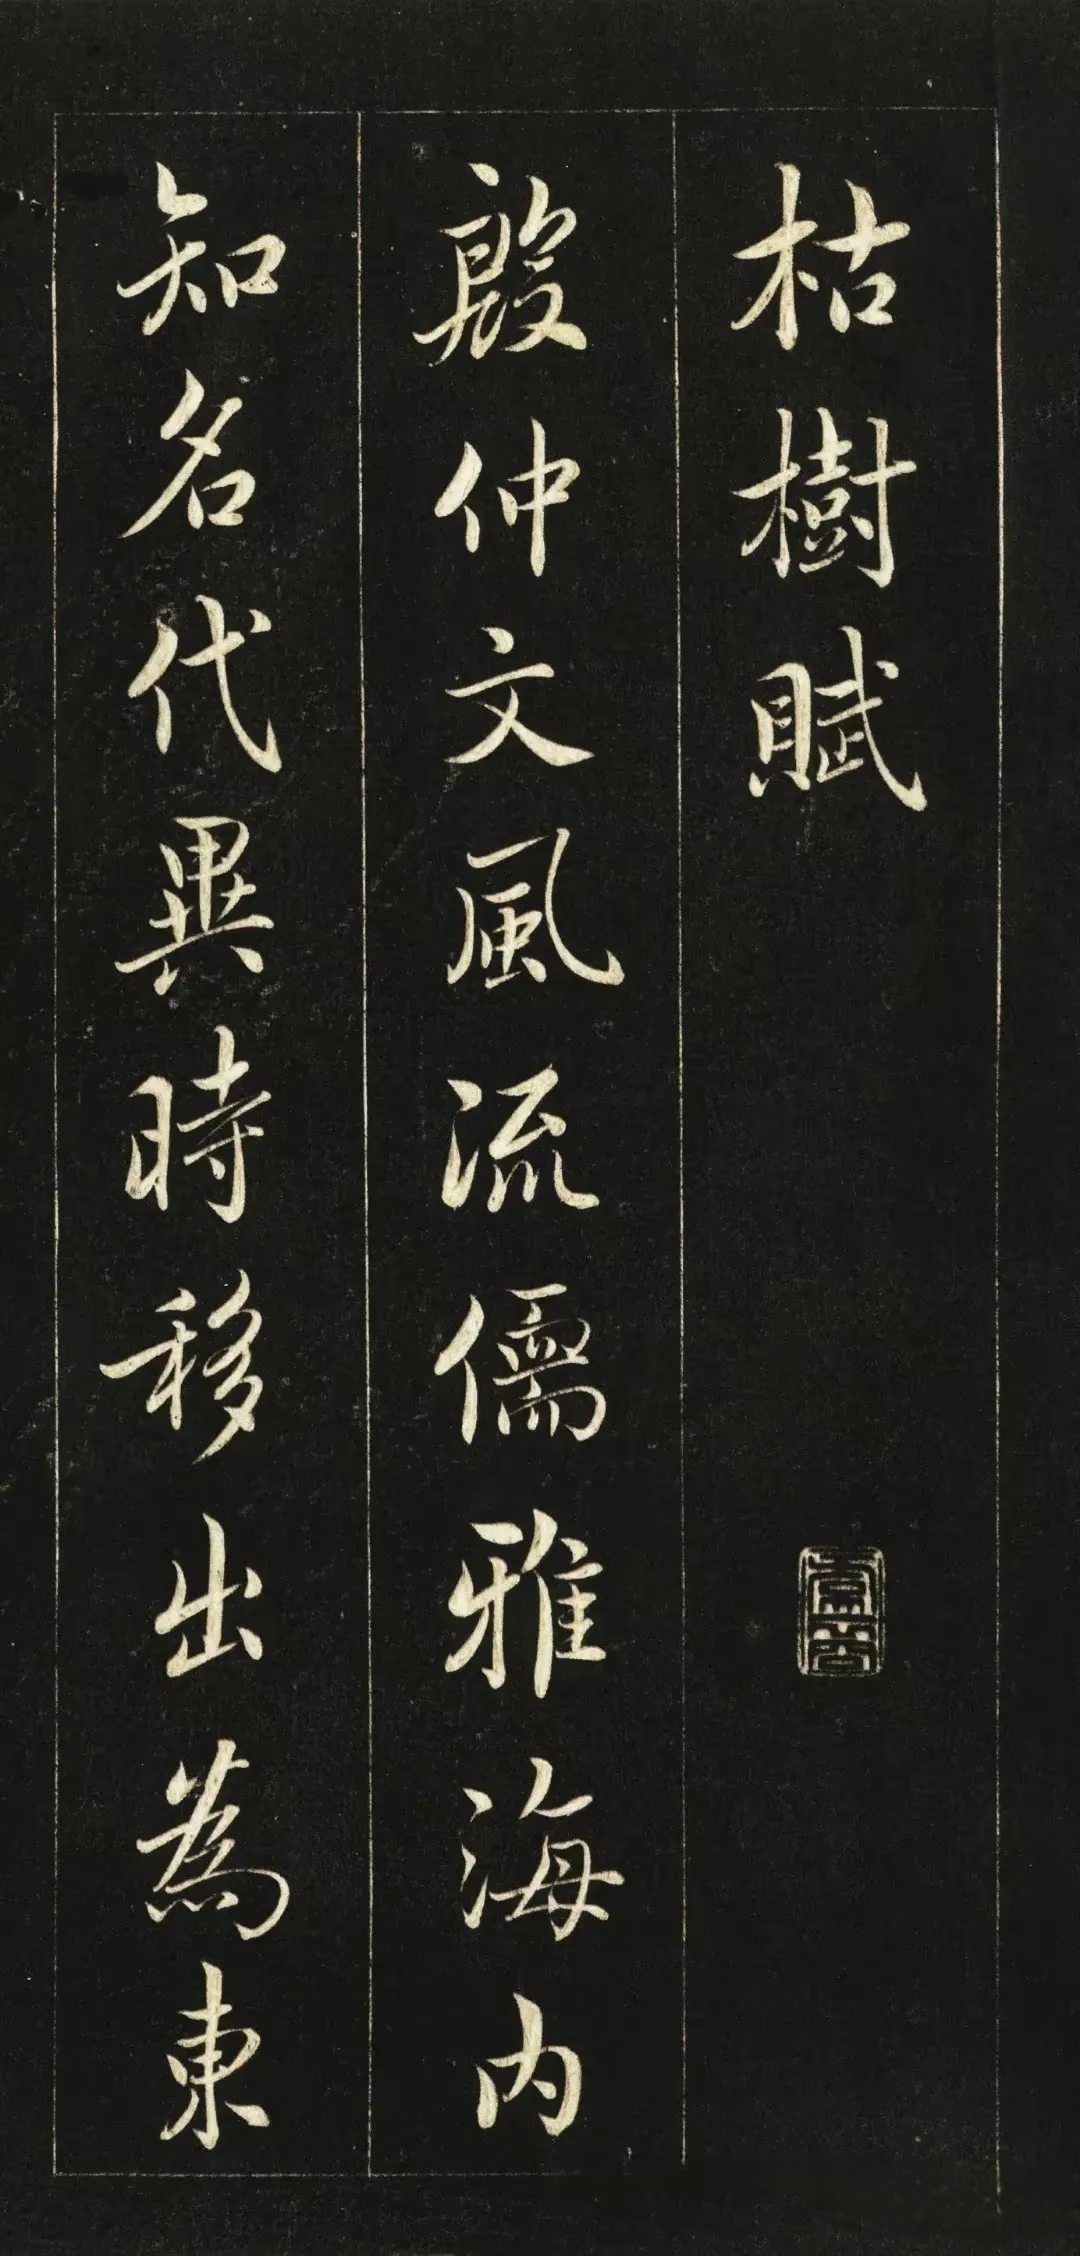 枯樹賦
殷仲文風流儒雅海内
知名代異時移出為東